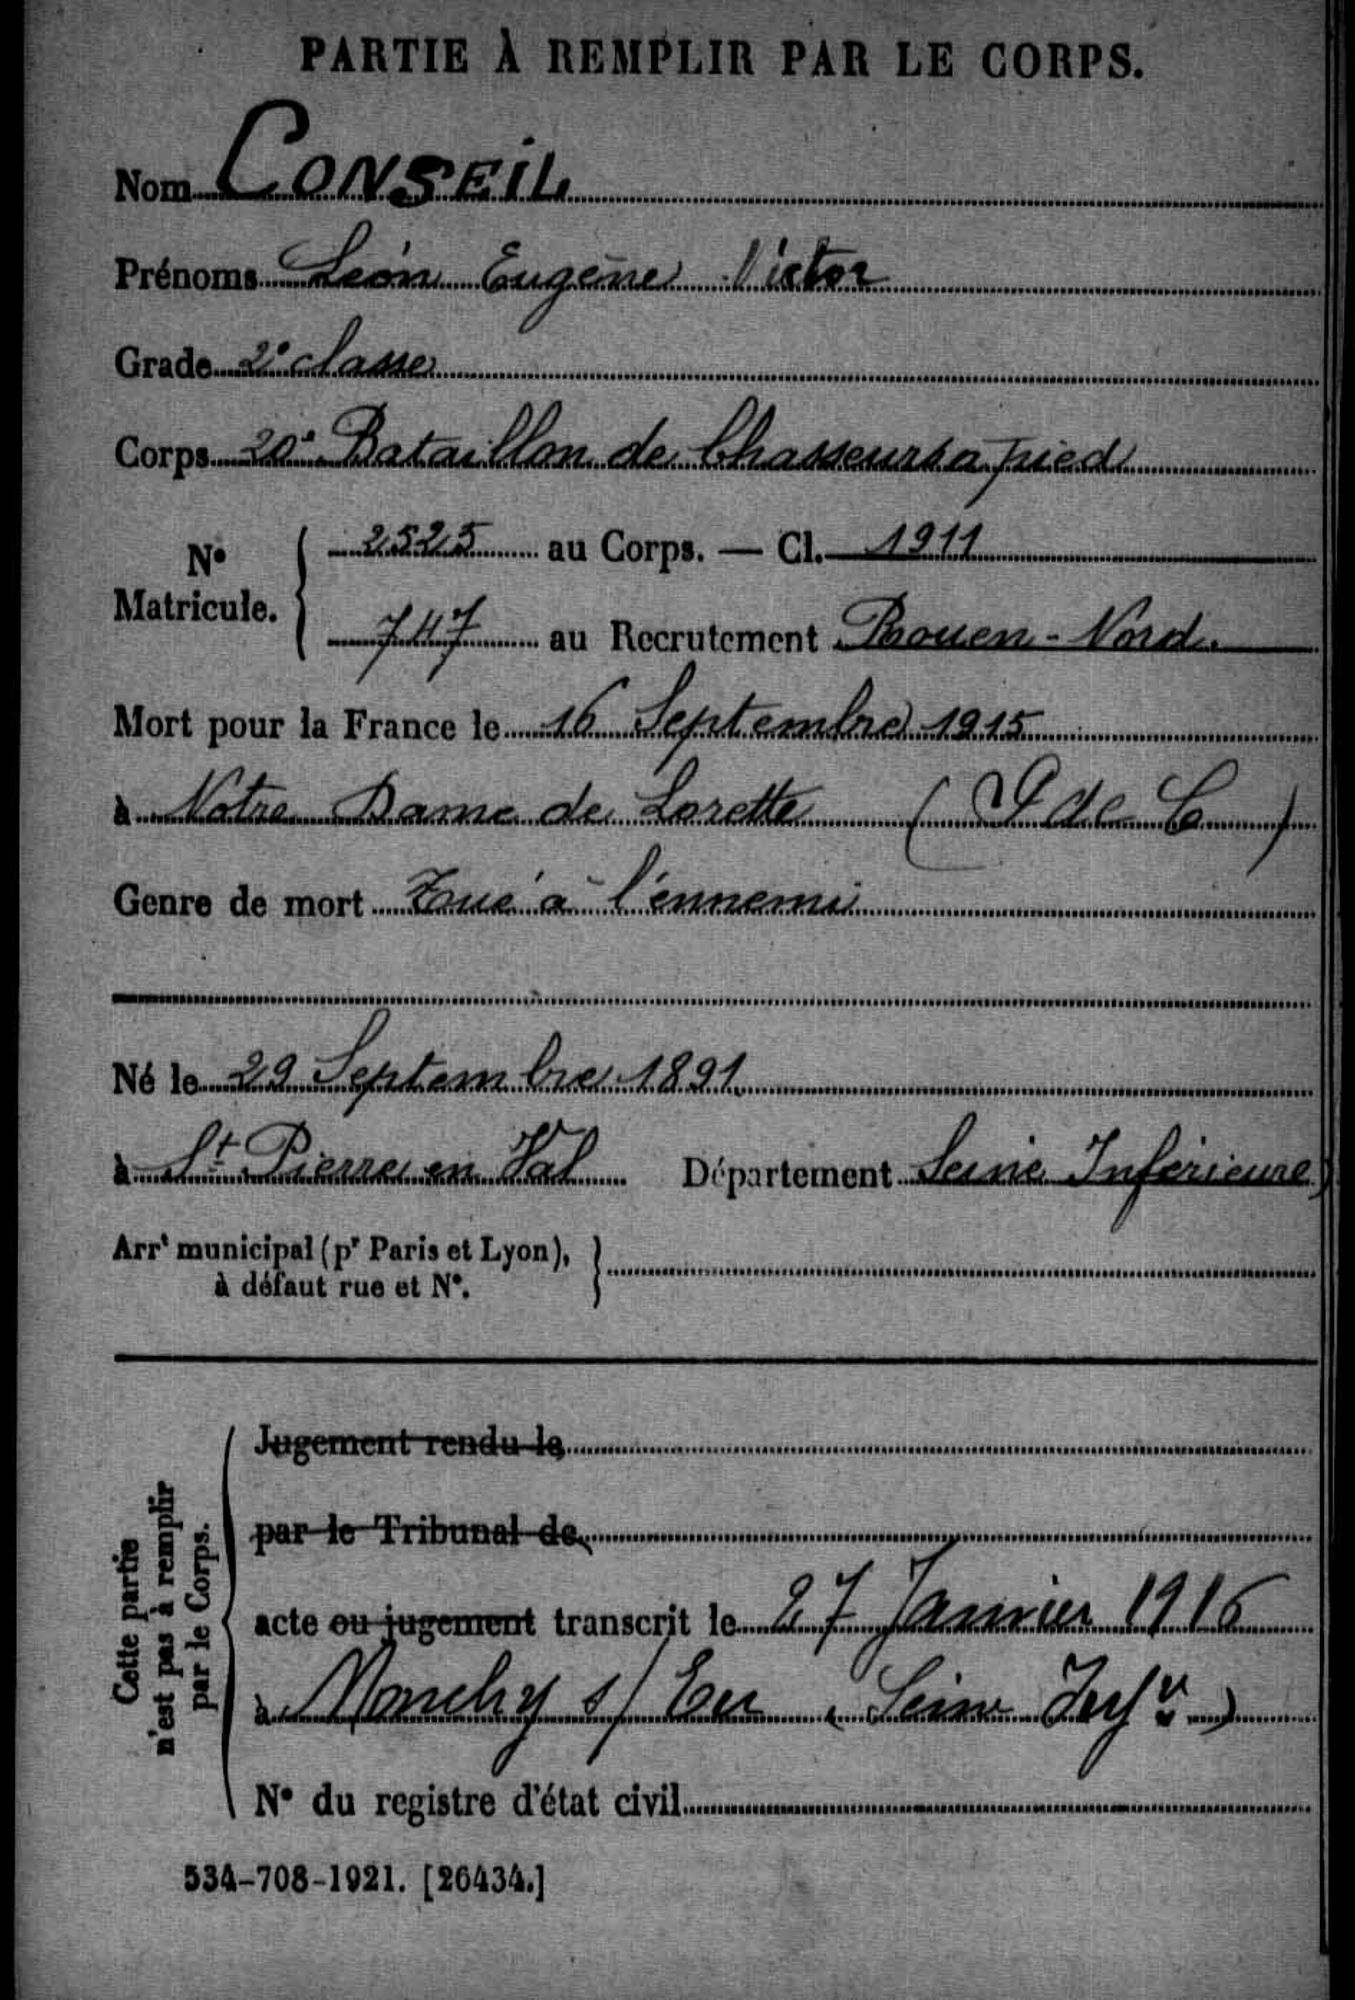 PARTIE À REMPLIR PAR LE CORPS.
Nom CONSEIL
Prénoms Léon Eugène Victor
Grade 2e classe
Corps 20e Bataillon de Chasseurs à pied
No Matricule. { 2525 au Corps. — Cl. 1911
747 au Recrutement Rouen-Nord.
Mort pour la France le 16 Septembre 1915
à Notre Dame de Lorette (P de C)
Genre de mort Tué à l'ennemi
Né le 29 Septembre 1891
à St Pierre en Val Département Seine Inférieure
Arrt municipal (pr Paris et Lyon),
à défaut rue et No.
Cette partie
n'est pas à remplir
par le Corps.
Jugement rendu le
par le Tribunal de
acte ou jugement transcrit le 27 Janvier 1916
à Monchy s/ Eu (Seine Infre)
No du registre d'état civil
534-708-1921. [26434.]